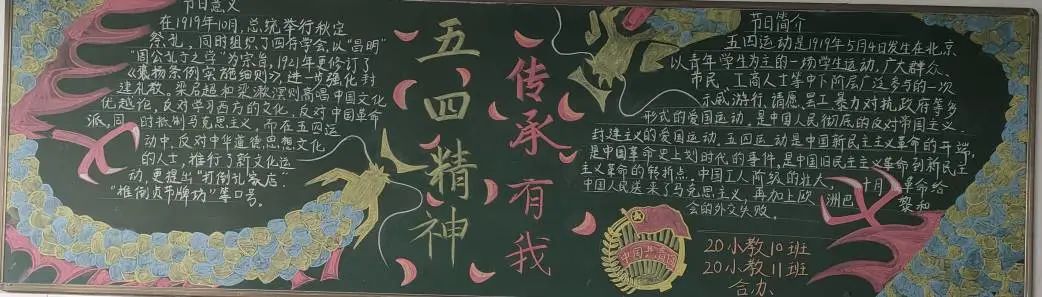 节日意义
在1919年10月,总统举行秋定
祭礼,同时组织了四存学会,以“昌明
“周公孔子之学”为宗旨,1921年更修订了
《褒扬条例实施细则》,进一步强化封
建礼教、梁启超和梁漱溟则高唱中国文化
优越论,反对学习西方的文化,反对中国革命
派,同时抵制马克思主义,而在五四运
动中,反对中华道德、思想文化
的人士,推行了新文化运
动,更提出“打倒孔家店:
“推倒贞节牌坊”等口号。
五四精神
传承有我
节日简介
五四运动是1919年5月4日发生在北京
以青年学生为主的一场学生运动,广大群众、
市民、工商人士等中下阶层广泛参与的一次
示威游行、请愿、罢工、暴力对抗政府等多
形式的爱国运动,是中国人民彻底的反对帝国主义、
封建主义的爱国运动。五四运动是中国新民主主义革命的开端,
是中国革命史上划时代的事件,是中国旧民主主义革命到新民主
主义革命的转折点。中国工人阶级的壮大,十月革命给
中国人民送来了马克思主义,再加上欧洲巴黎和
会的外交失败。
中国共青团
20小教10班
20小教11班
合办